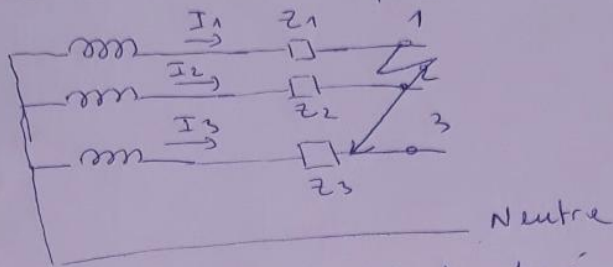 I1 Z1 1
I2 2
Z2
I3 3
Z3
Neutre